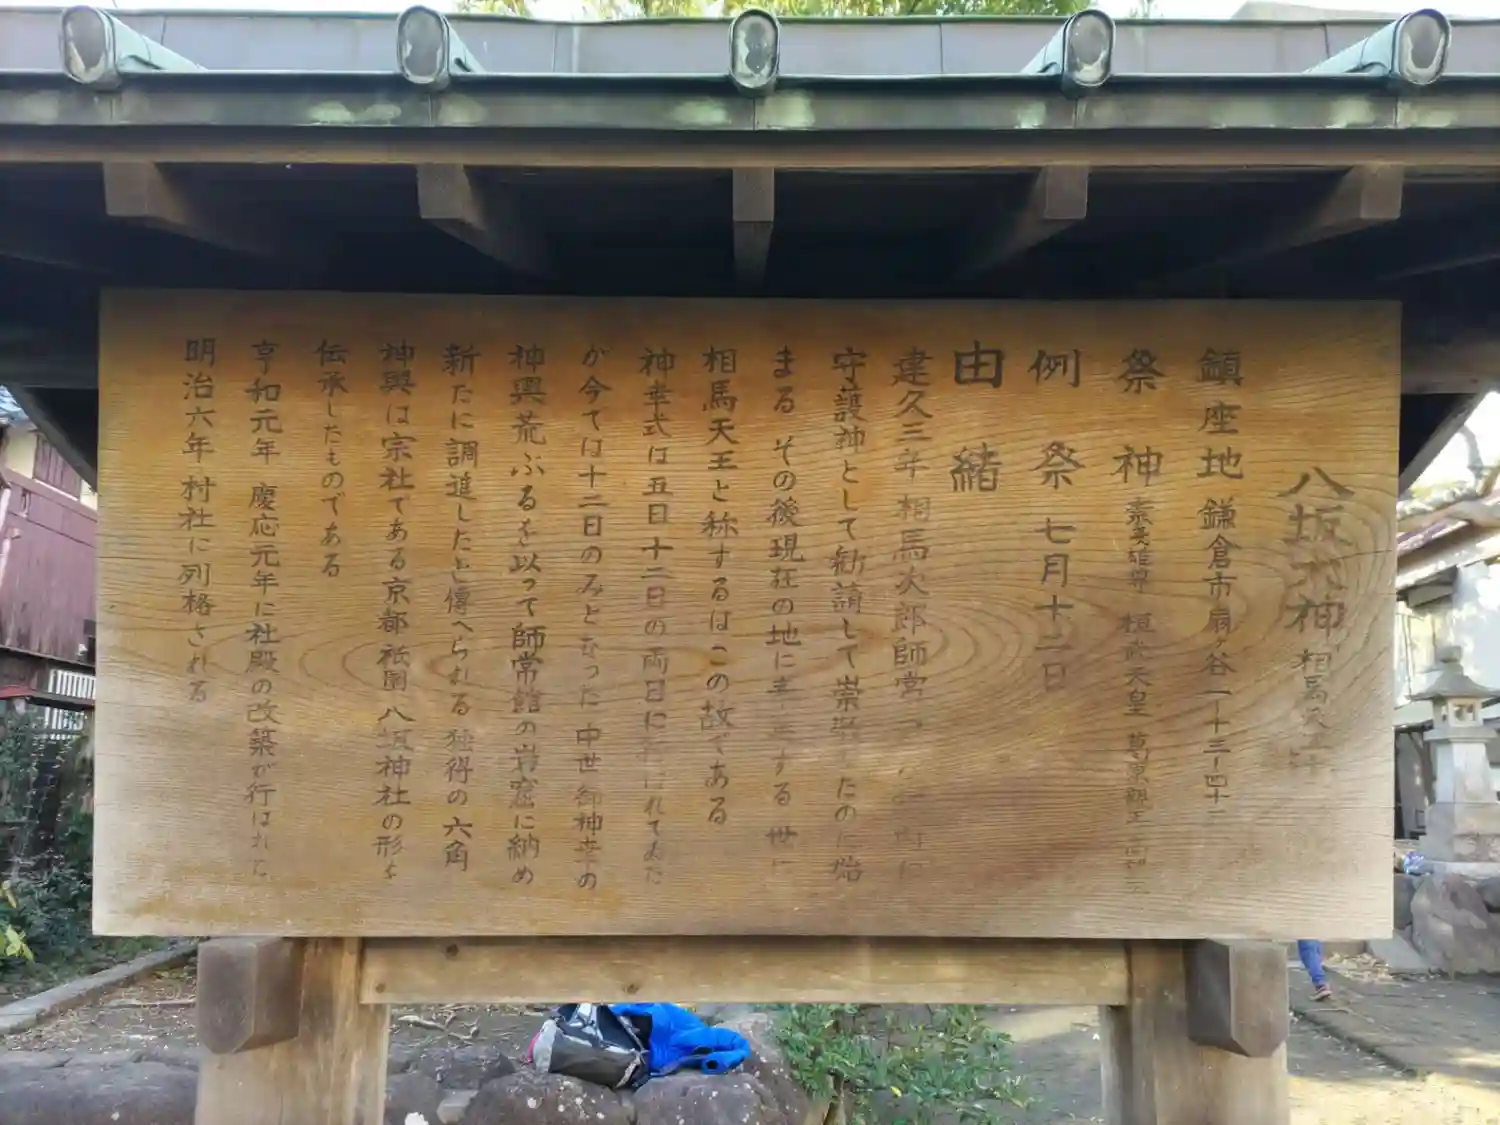 八坂大神 相馬天王
鎮座地 鎌倉市扇ヶ谷一ー十三ー四十
祭神 素戔雄尊 桓武天皇 葛原親王 高望王
例祭 七月十二日
由緒
建久三年 相馬次郎師常
守護神として勧請して崇敬したのに始
まる その後現在の地に する 世に
相馬天王と称するはこの故である
神幸式は五日十二日の両日に行はれてゐた
が今では十二日のみとなった 中世御神幸の
神輿荒ぶるを以って師常館の岩窟に納め
新たに調進したと傳へられる 独得の六角
神輿は宗社である京都祇園八坂神社の形を
伝承したものである
享和元年 慶応元年に社殿の改築が行はれた
明治六年 村社に列格される